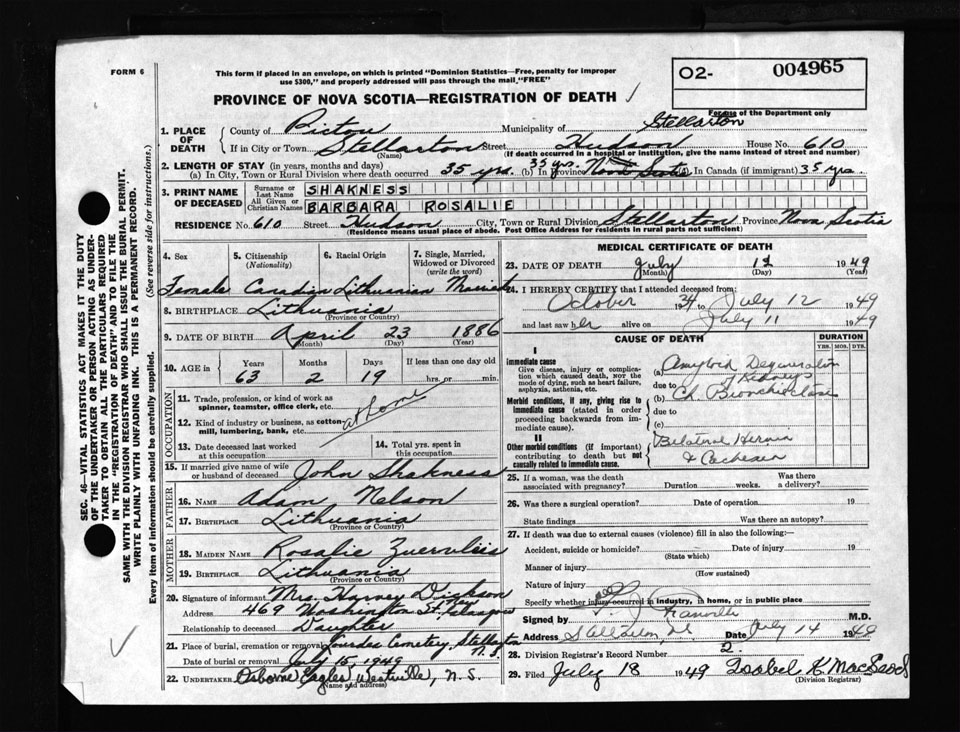 FORM 6
This form if placed in an envelope, on which is printed "Dominion Statistics—Free, penalty for improper
use $300," and properly addressed will pass through the mail "FREE"
O2- 004965
For use of the Department only
PROVINCE OF NOVA SCOTIA—REGISTRATION OF DEATH
SEC. 46—VITAL STATISTICS ACT MAKES IT THE DUTY
OF THE UNDERTAKER OR PERSON ACTING AS UNDER-
TAKER TO OBTAIN ALL THE PARTICULARS REQUIRED
IN THE "REGISTRATION OF DEATH" AND TO FILE THE
SAME WITH THE DIVISION REGISTRAR WHO SHALL ISSUE THE BURIAL PERMIT.
WRITE PLAINLY WITH UNFADING INK. THIS IS A PERMANENT RECORD.
Every item of information should be carefully supplied. (See reverse side for instructions.)
1. PLACE OF DEATH
County of Pictou Municipality of Stellarton
If in City or Town Stellarton Street Hudson House No. 610
(Name) (If death occurred in a hospital or institution, give the name instead of street and number)
2. LENGTH OF STAY (in years, months and days)
(a) In City, Town or Rural Division where death occurred 35 yrs. (b) In Province 35 yrs. Nova Scotia In Canada (if immigrant) 35 yrs.
3. PRINT NAME OF DECEASED
Surname or Last Name SHAKNESS
All Given or Christian Names BARBARA ROSALIE
RESIDENCE No. 610 Street Hudson City, Town or Rural Division Stellarton Province Nova Scotia
(Residence means usual place of abode. Post Office Address for residents in rural parts not sufficient)
4. Sex 5. Citizenship (Nationality) 6. Racial Origin 7. Single, Married, Widowed or Divorced (write the word)
Female Canadian Lithuanian Married
8. BIRTHPLACE Lithuania
(Province or Country)
9. DATE OF BIRTH April 23 1886
(Month) (Day) (Year)
10. AGE in Years Months Days If less than one day old
63 2 19 hrs. or min.
OCCUPATION
11. Trade, profession, or kind of work as
spinner, teamster, office clerk, etc.
at home
12. Kind of industry or business, as cotton-
mill, lumbering, bank, etc.
13. Date deceased last worked
at this occupation
14. Total yrs. spent in
this occupation
15. If married give name of wife
or husband of deceased John Shakness
FATHER
16. NAME Adam Nelson
17. BIRTHPLACE Lithuania
(Province or Country)
MOTHER
18. MAIDEN NAME Rosalie
19. BIRTHPLACE Lithuania
(Province or Country)
20. Signature of informant Mrs. Harvey Dickson
Address 469 Washington St. New Glasgow
Relationship to deceased Daughter
21. Place of burial, cremation or removal Lourdes Cemetery, Stellarton N.S.
Date of burial or removal July 15, 1949
22. UNDERTAKER Osborne Eagles Westville, N.S.
(Name and address)
MEDICAL CERTIFICATE OF DEATH
23. DATE OF DEATH July 12 1949
(Month) (Day) (Year)
24. I HEREBY CERTIFY that I attended deceased from:
October 1934 to July 12 1949
and last saw her alive on July 11 1949
CAUSE OF DEATH DURATION
YRS. MOS. DYS.
I
Immediate cause
Give disease, injury or complica-
tion which caused death, NOT the
mode of dying, such as heart failure,
asphyxia, asthenia, etc.
(a) Amyloid Degeneration
of Kidneys
due to
Morbid conditions, if any, giving rise to
immediate cause (stated in order
proceeding backwards from im-
mediate cause).
(b) Ch. Bronchiectasis
due to
(c)
II
Other morbid conditions (if important)
contributing to death but not
causally related to immediate cause.
Bilateral Hernia
25. If a woman, was the death
associated with pregnancy? Duration weeks. Was there
a delivery?
26. Was there a surgical operation? Date of operation 19
State findings Was there an autopsy?
27. If death was due to external causes (violence) fill in also the following:—
Accident, suicide or homicide? Date of injury 19
(State which)
Manner of injury
(How sustained)
Nature of injury
Specify whether injury occurred in industry, in home, or in public place
Signed by M.D.
Address Stellarton Date July 14 1949
28. Division Registrar's Record Number 2.
29. Filed July 18 1949 Isobel K. MacLeod
(Division Registrar)